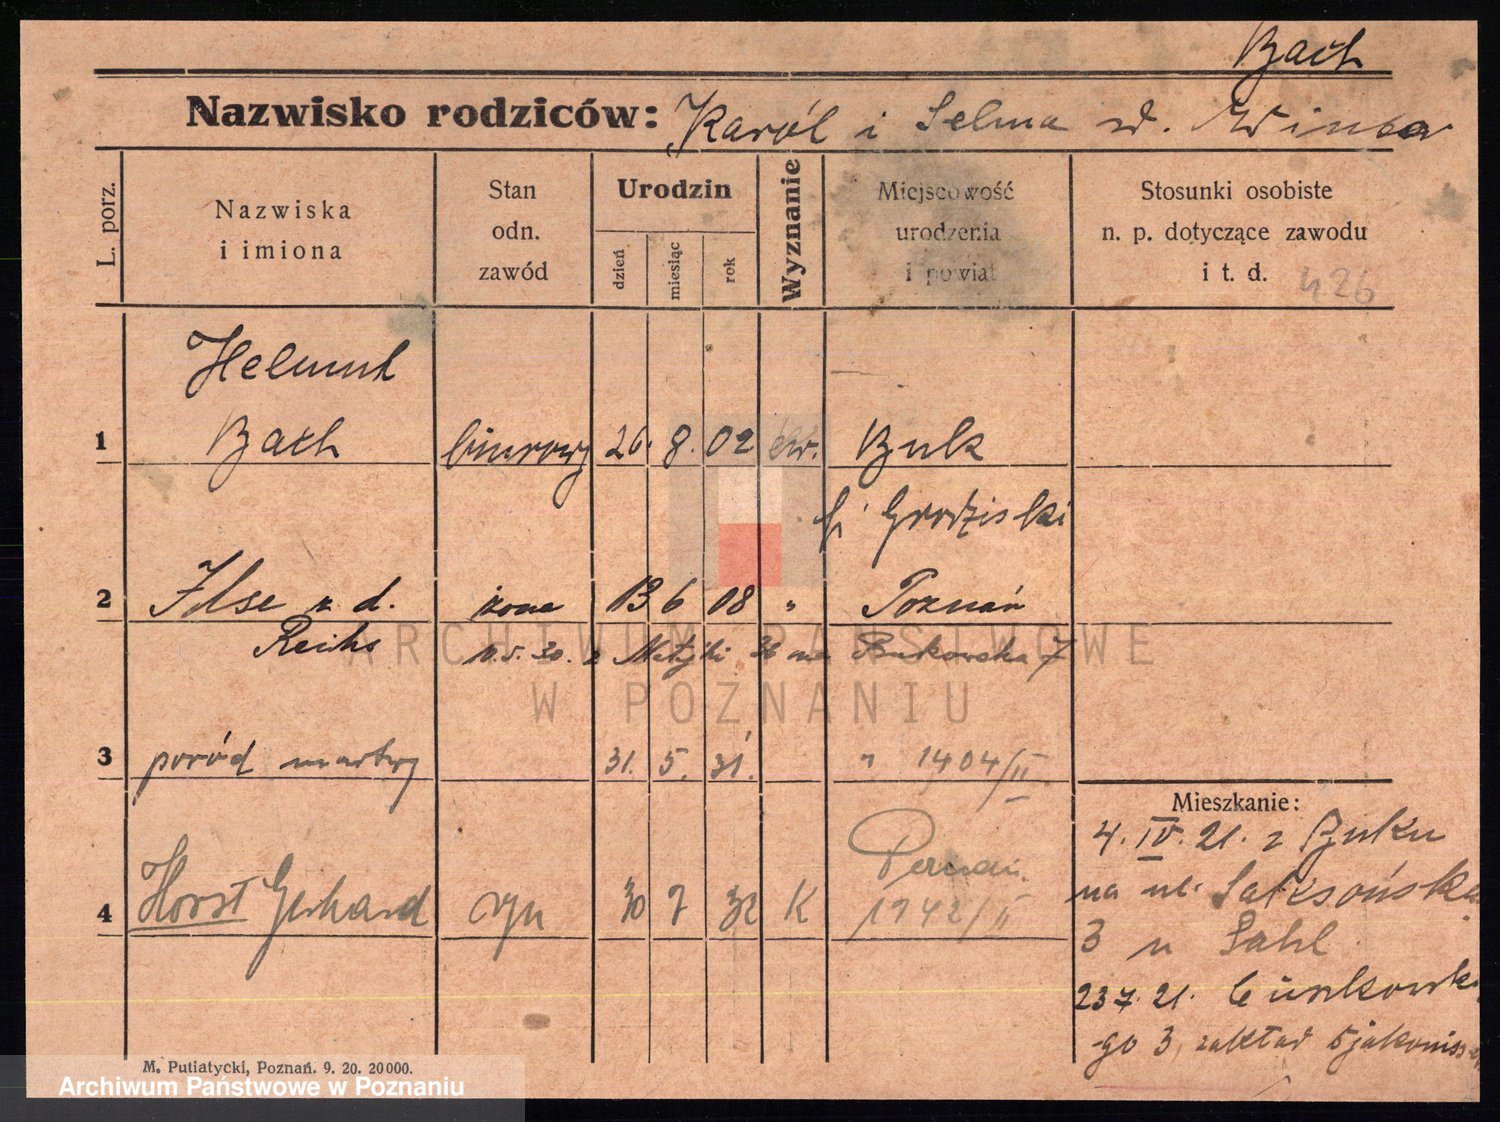 Bach
Nazwisko rodziców: Karól i Selma
L. porz.
Nazwiska
i imiona
Stan
odn.
zawód
Urodzin
dzień
miesiąc
rok
Wyznanie
Miejscowość
urodzenia
i powiat
Stosunki osobiste
n. p. dotyczące zawodu
i t. d. 426
Helmut
1 Bach biurowy 26. 8. 02 ew. Buk
Grodziski
2 Ilse z d. żona 13 6 08 " Poznań
Reichs
10.5.30. z Matejki 36 na Bukowska 7
3 poród martwy 31. 5. 31. " 1404/II
Mieszkanie:
4. IV. 21. z Buku
na ul. Saksońska
3 u Sahl
4 Horst Gerhard syn 30 7 32 K Poznań.
1742/II
23 7. 21.
go 3, zakład djakoniss
M. Putiatycki, Poznań. 9. 20. 20000.
ARCHIWUM PAŃSTWOWE
W POZNANIU
Archiwum Państwowe w Poznaniu